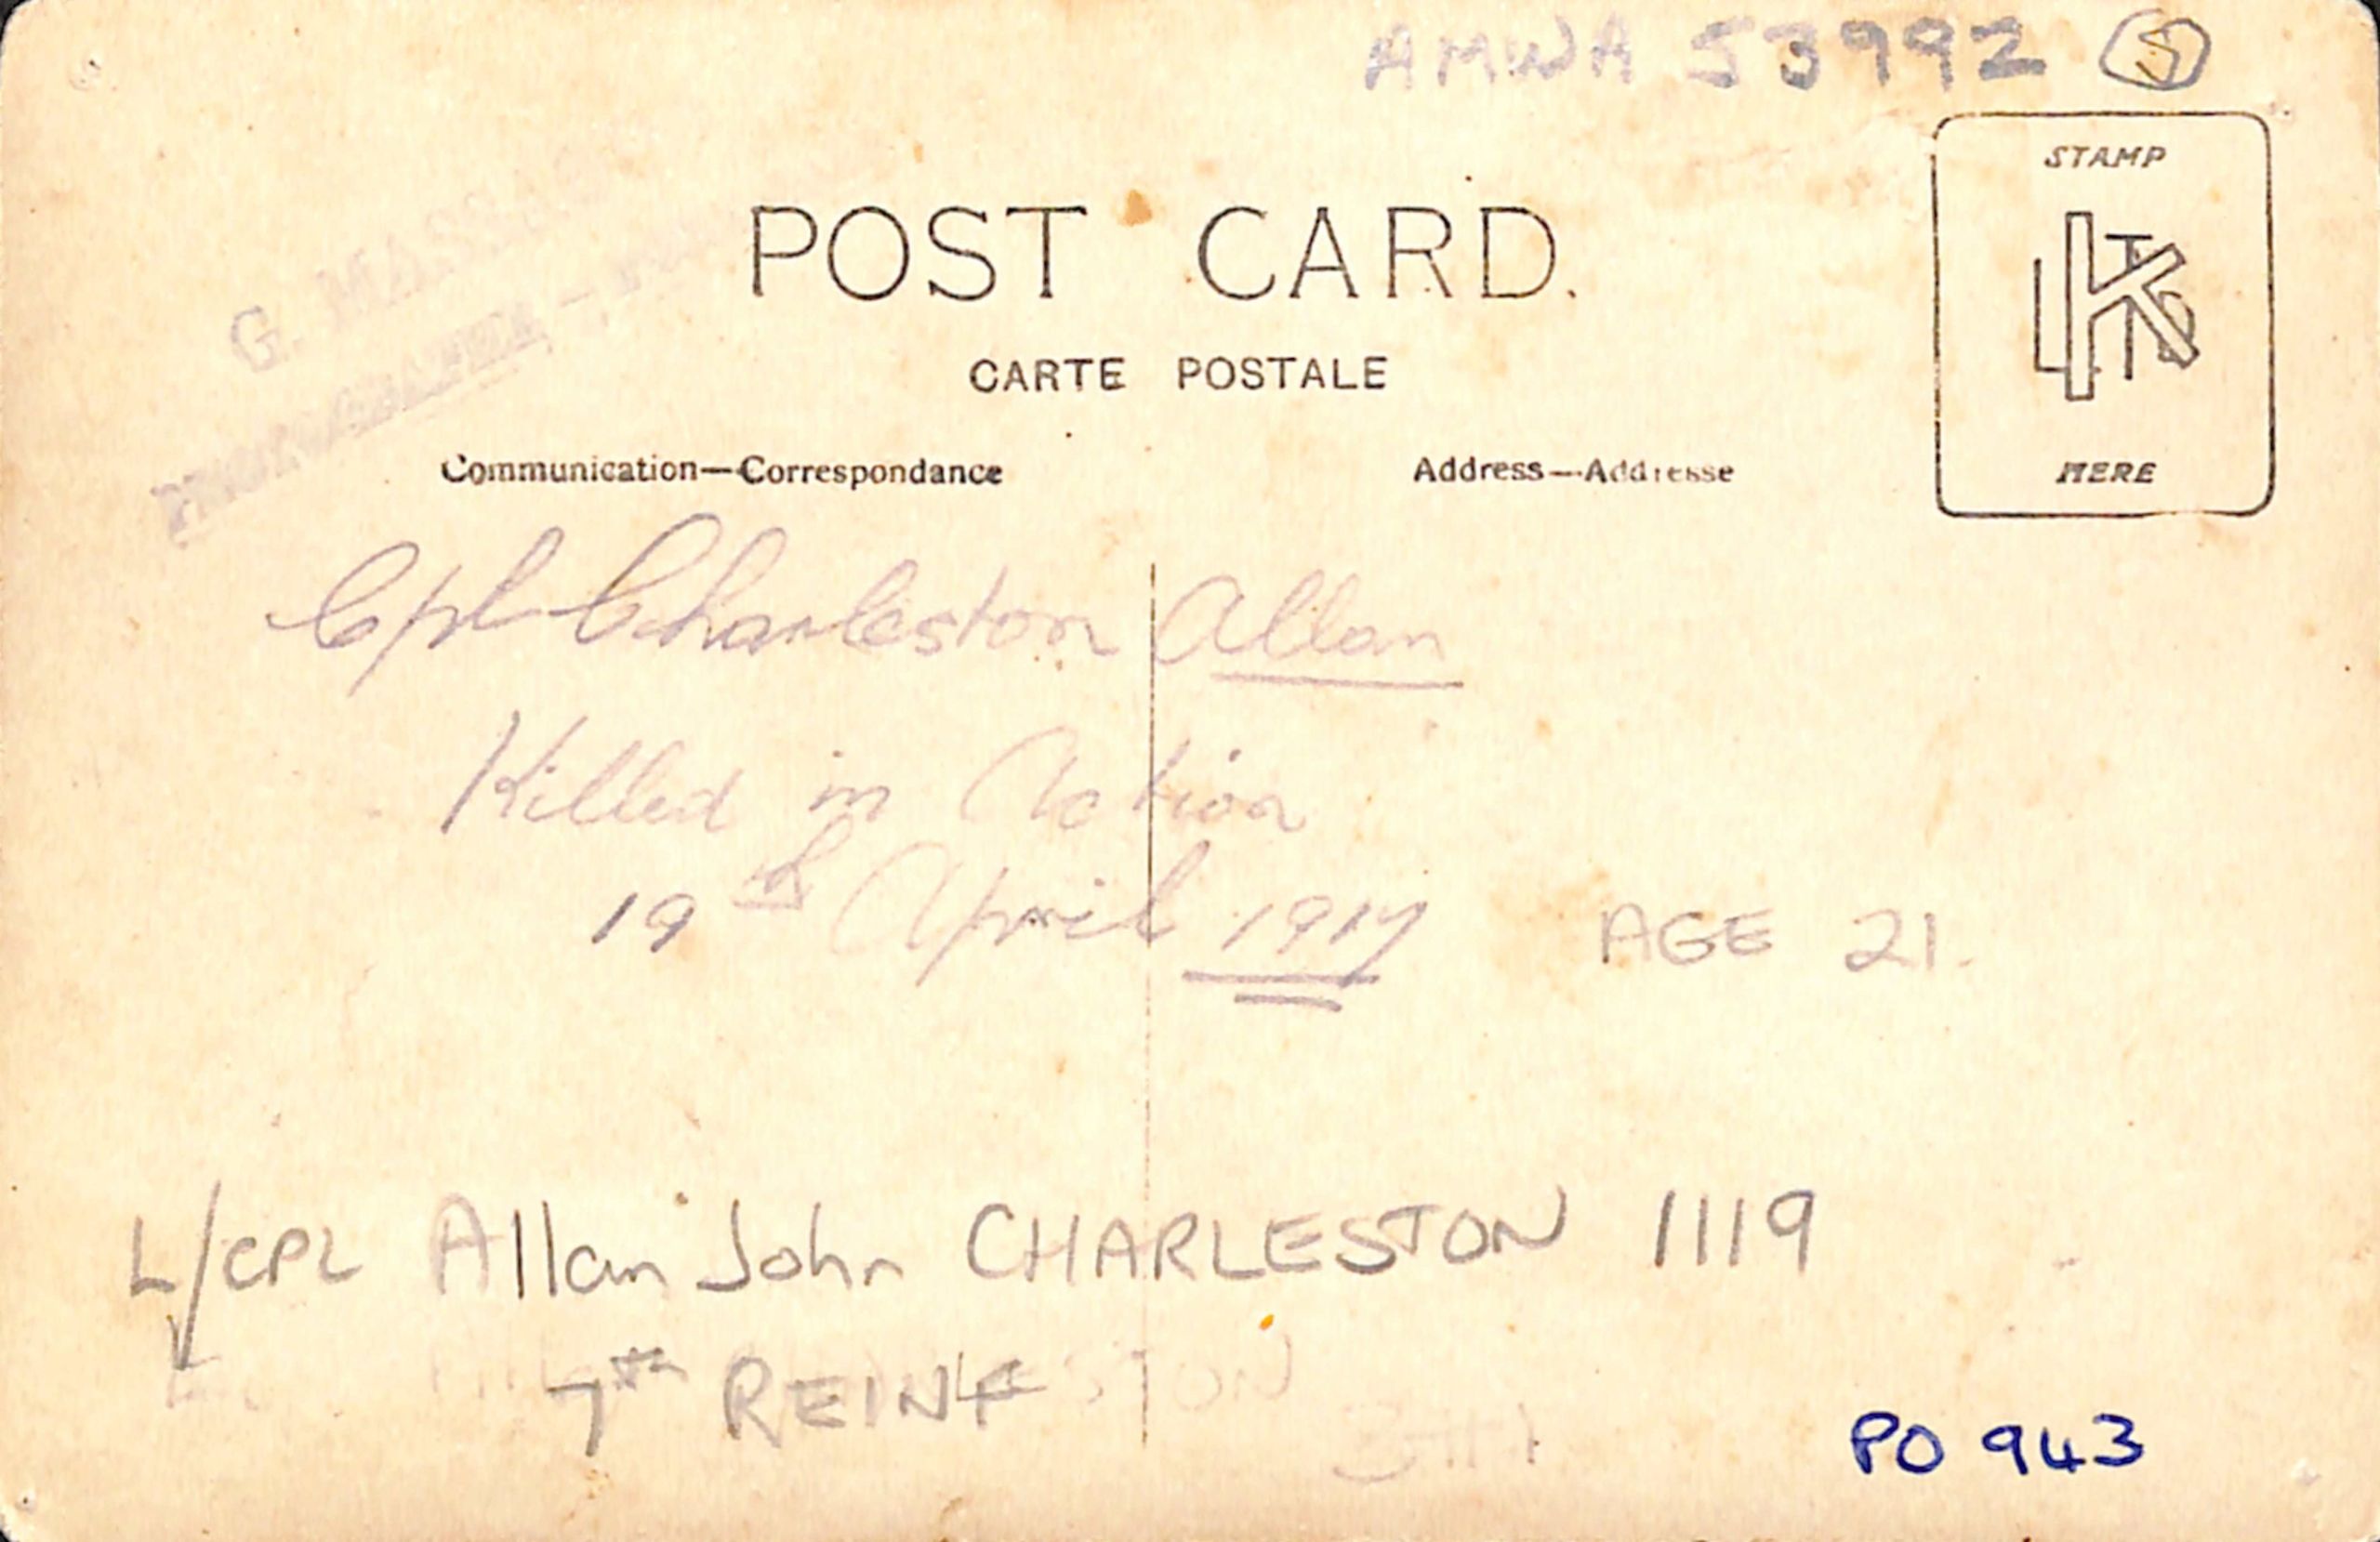 AMWA 53992 5
G. MASSA
STAMP
POST CARD.
CARTE POSTALE
HERE
Communication—Correspondance
Address—Addresse
Cpl Charleston Allan
Killed in Action
19th April 1917 AGE 21.
L/CPL Allan John CHARLESTON 1119
7th REINF
PO 943